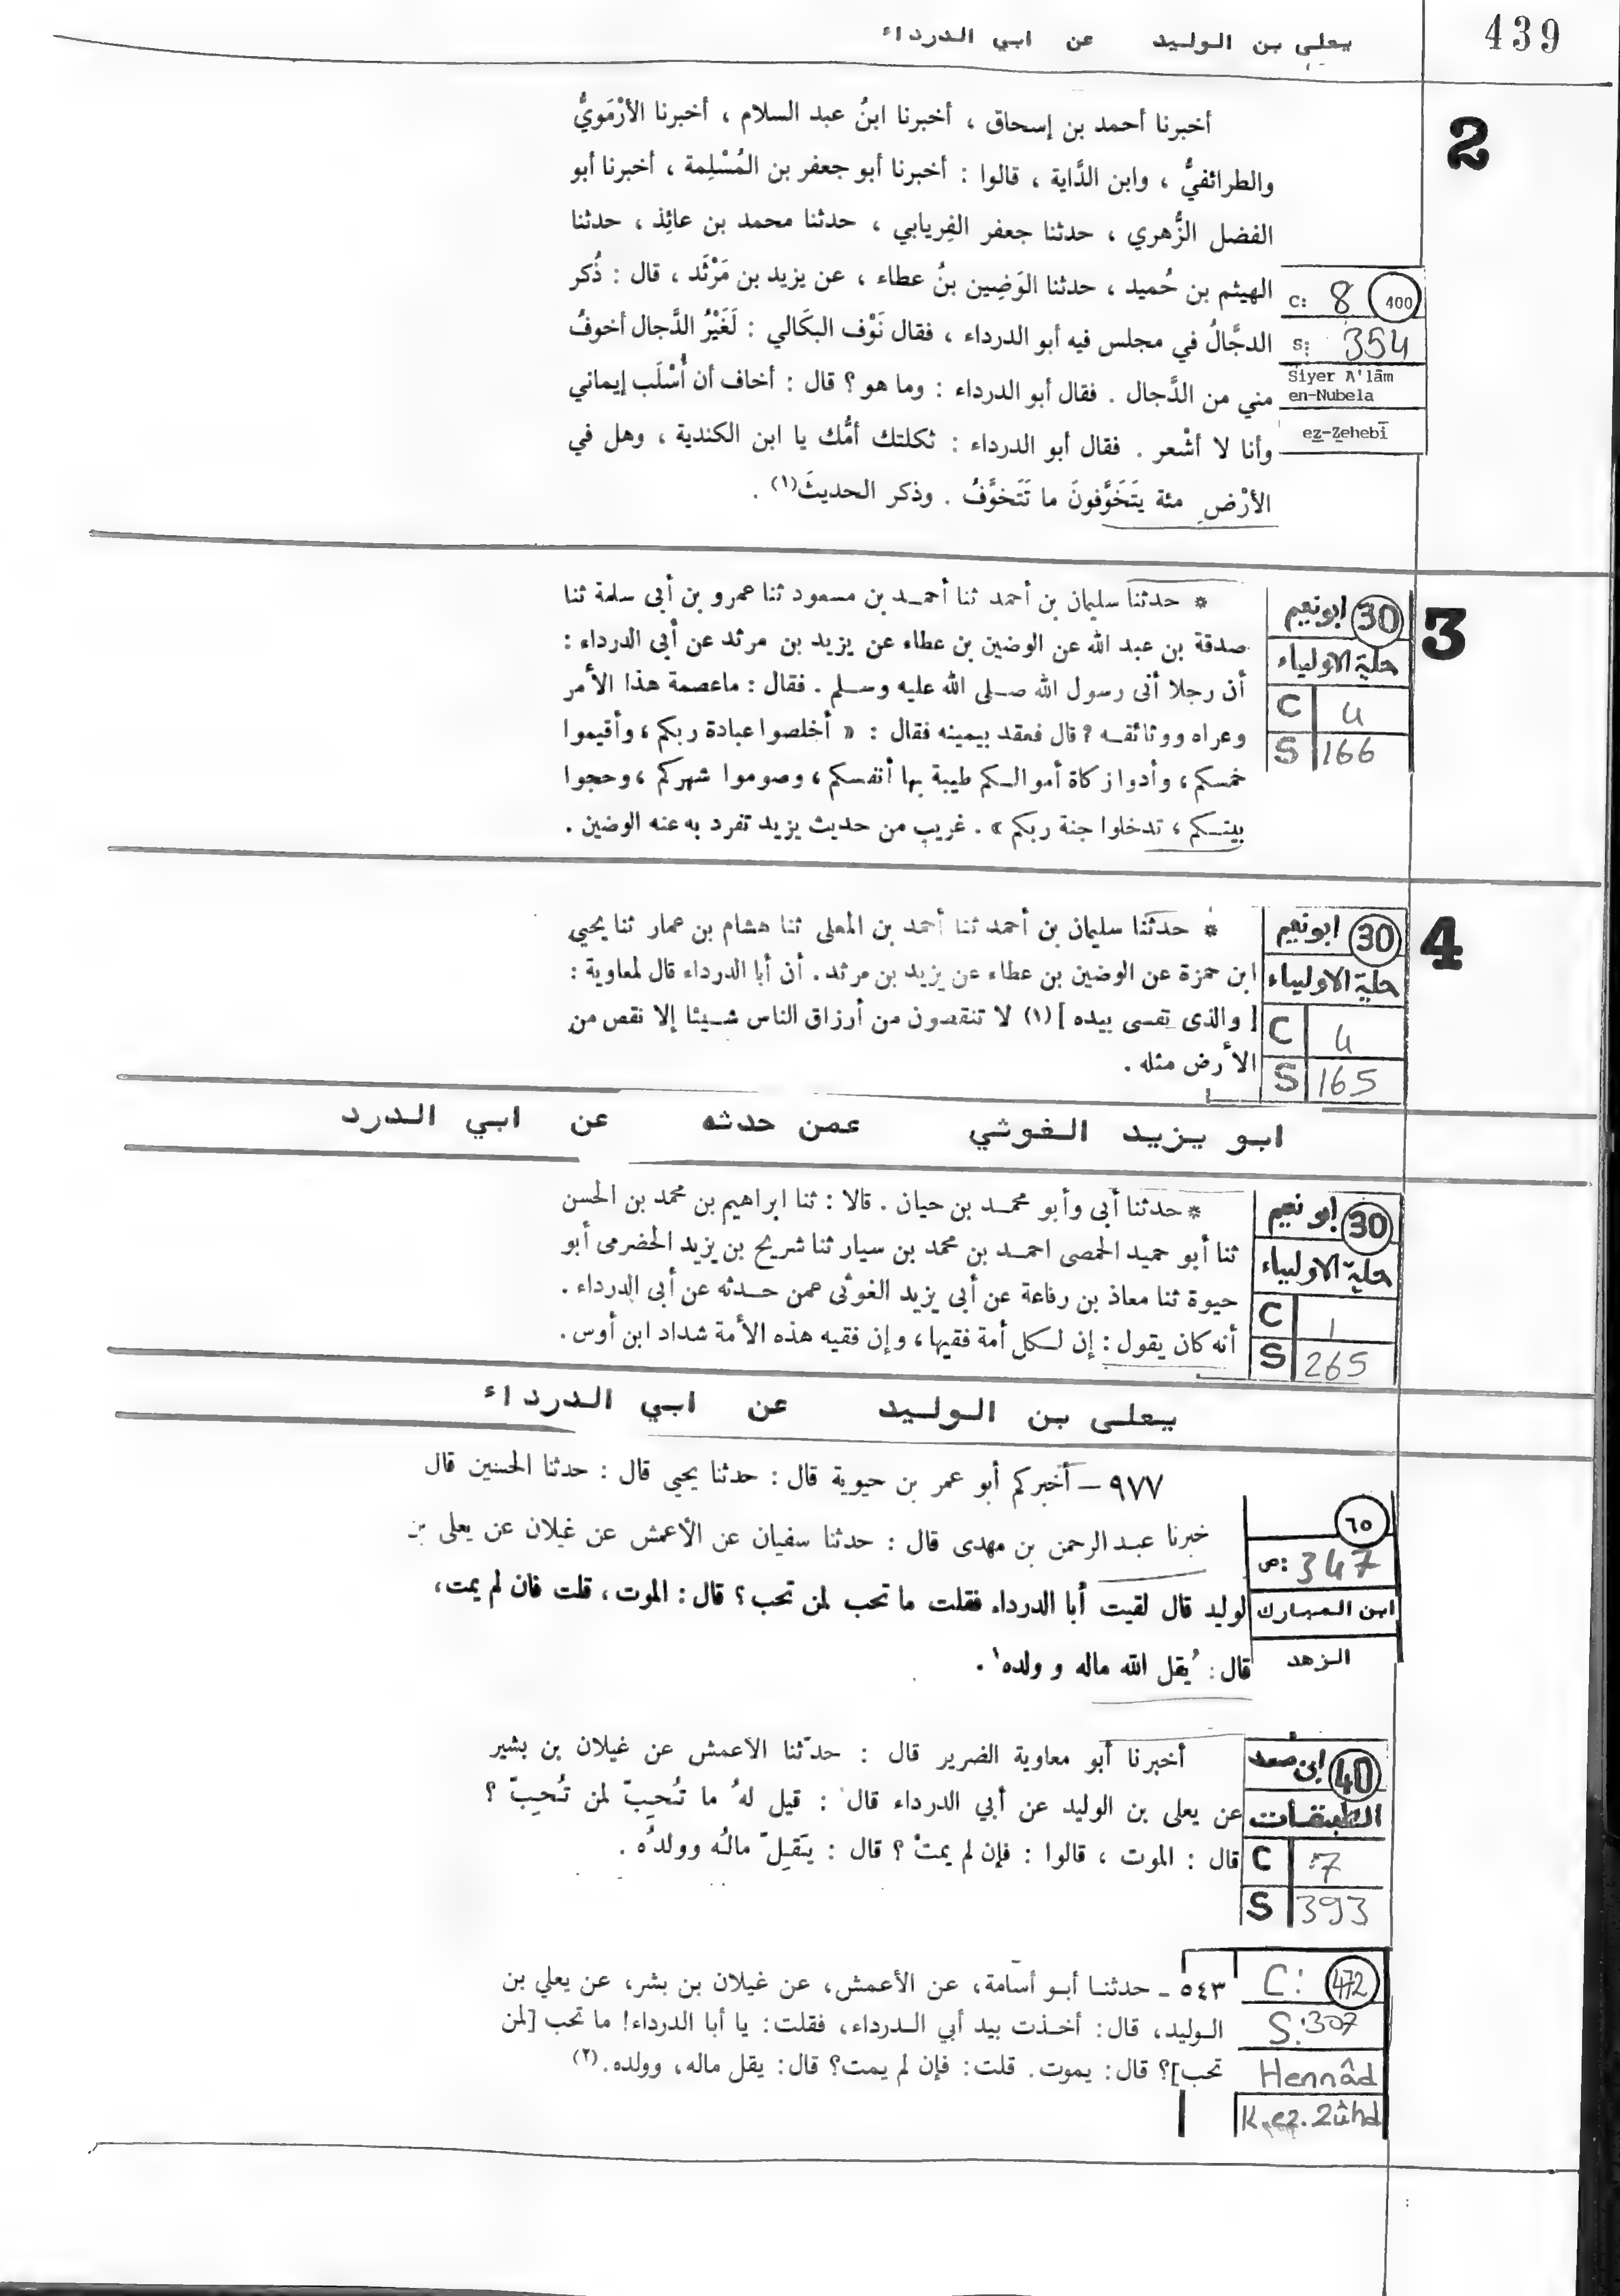 439
يعلى بن الوليد عن ابي الدرداء
2
أخبرنا أحمد بن إسحاق ، أخبرنا ابنُ عبد السلام ، أخبرنا الأرْمَويُّ
والطرائفيُّ ، وابن الدَّاية ، قالوا : أخبرنا أبو جعفر بن المُسْلِمة ، أخبرنا أبو
الفضل الزُّهري ، حدثنا جعفر الفِريابي ، حدثنا محمد بن عائِذ ، حدثنا
الهيثم بن حُميد ، حدثنا الوَضِين بنُ عطاء ، عن يزيد بن مَرْثَد ، قال : ذُكر
الدجَّالُ في مجلس فيه أبو الدرداء ، فقال نَوْف البكَالي : لَغَيْرُ الدَّجال أخوفُ
مني من الدَّجال . فقال أبو الدرداء : وما هو ؟ قال : أخاف أن أُسْلَب إيماني
وأنا لا أشْعر . فقال أبو الدرداء : ثكلتك أمُّك يا ابن الكندية ، وهل في
الأرْضِ مئة يتَخَوَّفونَ ما تَتَخوَّفُ . وذكر الحديثَ(١) .
C: 8 400
S: 354
Siyer A'lâm
en-Nubela
ez-Zehebî
3
* حدثنا سليمان بن أحمد ثنا أحمد بن مسعود ثنا عمرو بن أبى سلمة ثنا
صدقة بن عبد الله عن الوضين بن عطاء عن يزيد بن مرثد عن أبى الدرداء :
أن رجلا أتى رسول الله صلى الله عليه وسلم . فقال : ماعصمة هذا الأمر
وعراه ووثائقه ؟ قال فعقد بيمينه فقال : « أخلصوا عبادة ربكم ، وأقيموا
خمسكم ، وأدوا زكاة أموالكم طيبة بها أنفسكم ، وصوموا شهركم ، وحجوا
بيتكم ، تدخلوا جنة ربكم » . غريب من حديث يزيد تفرد به عنه الوضين .
30 ابونعيم
حلية الاولياء
C 4
S 166
4
* حدثنا سليمان بن أحمد ثنا أحمد بن المعلى ثنا هشام بن عمار ثنا يحيي
ابن حمزة عن الوضين بن عطاء عن يزيد بن مرثد . أن أبا الدرداء قال لمعاوية :
[ والذى نفسى بيده ] (١) لا تنقصون من أرزاق الناس شيئا إلا نقص من
الأرض مثله .
30 ابونعيم
حلية الاولياء
C 4
S 165
ابو يزيد الغوثي عمن حدثه عن ابي الدرد
* حدثنا أبى وأبو محمد بن حيان . قالا : ثنا ابراهيم بن محمد بن الحسن
ثنا أبو حميد الحمصى احمد بن محمد بن سيار ثنا شريح بن يزيد الحضرمى أبو
حيوة ثنا معاذ بن رفاعة عن أبى يزيد الغوثى عمن حدثه عن أبى الدرداء .
أنه كان يقول : إن لكل أمة فقيها ، وإن فقيه هذه الأمة شداد ابن أوس .
30 ابو نعيم
حلية الاولياء
C 1
S 265
يعلى بن الوليد عن ابي الدرداء
٩٧٧ – أخبركم أبو عمر بن حيوية قال : حدثنا يحيى قال : حدثنا الحسين قال
خبرنا عبد الرحمن بن مهدى قال : حدثنا سفيان عن الأعمش عن غيلان عن يعلى بن
لوليد قال لقيت أبا الدرداء فقلت ما تحب لمن تحب ؟ قال : الموت ، قلت فان لم يمت ،
قال : يُقل الله ماله و ولده١ .
٦٥
ص: 347
ابن المبارك
الزهد
أخبرنا أبو معاوية الضرير قال : حدّثنا الأعمش عن غيلان بن بشير
عن يعلى بن الوليد عن أبي الدرداء قال : قيل لهُ ما تُحِبّ لمن تُحِبّ ؟
قال : الموت ، قالوا : فإن لم يمتْ ؟ قال : يَقِلّ مالُه وولدُه .
40 ابن سعد
الطبقات
C 7
S 393
٥٤٣ ـ حدثنا أبو أسامة، عن الأعمش، عن غيلان بن بشر، عن يعلي بن
الوليد، قال: أخذت بيد أبي الدرداء، فقلت: يا أبا الدرداء! ما تحب [لمن
تحب]؟ قال: يموت. قلت: فإن لم يمت؟ قال: يقل ماله، وولده.(٢)
C: 472
S: 307
Hennâd
K.ez.Zühd